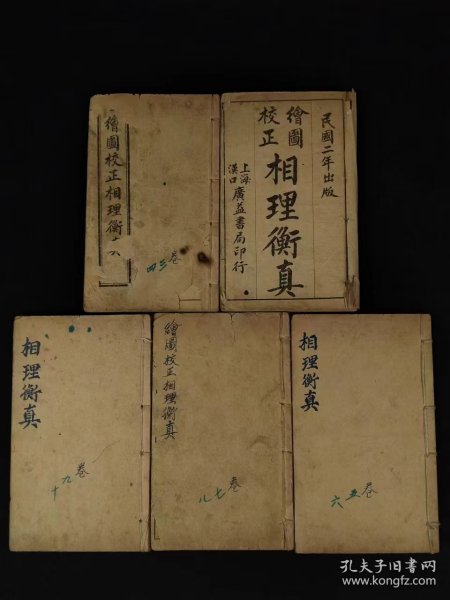 繪圖校正相理衡
卷三四
民國二年出版
繪圖
校正
相理衡真
上海
漢口
廣益書局印行
相理衡真
卷九十
繪圖校正相理衡真
卷七八
相理衡真
卷五六
孔夫子旧书网
www.kongfz.com